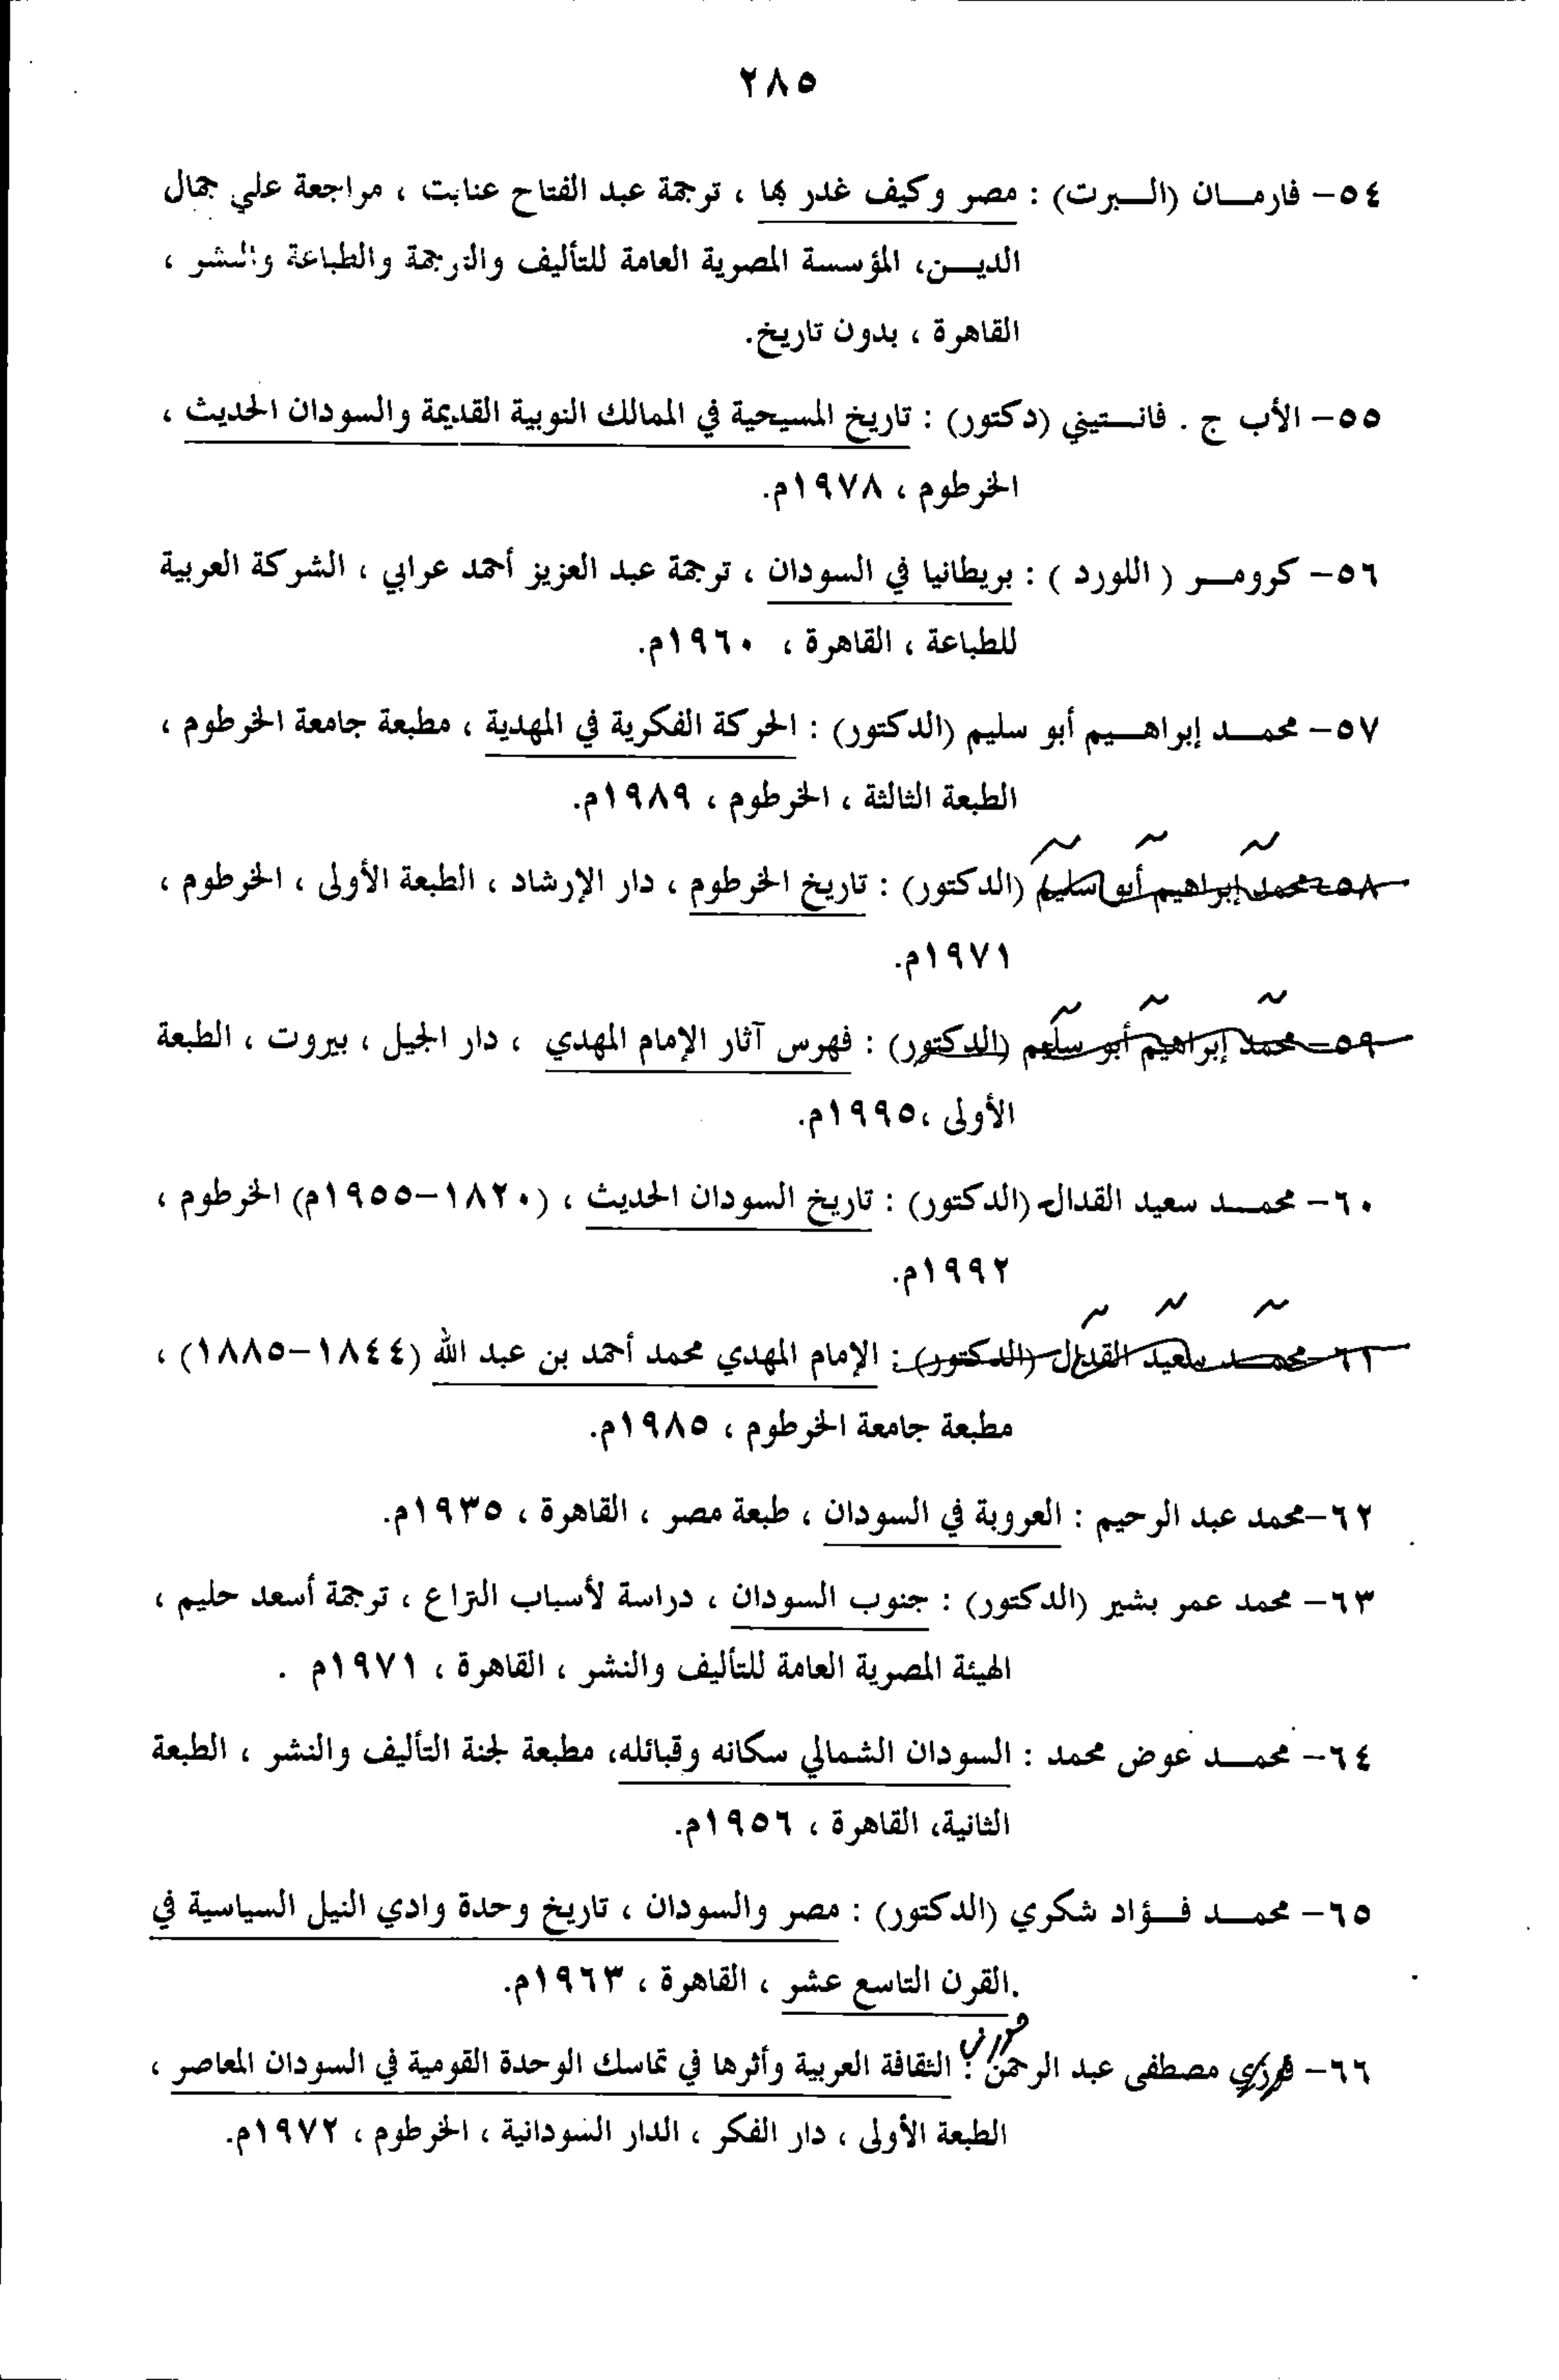 ٢٨٥
٥٤- فارمان (البرت) : مصر وكيف غدر بها ، ترجمة عبد الفتاح عنايت ، مراجعة علي جمال
الدين، المؤسسة المصرية العامة للتأليف والترجمة والطباعة والنشر ،
القاهرة ، بدون تاريخ.
٥٥- الأب ج . فانستيني (دكتور) : تاريخ المسيحية في الممالك النوبية القديمة والسودان الحديث ،
الخرطوم ، ١٩٧٨م.
٥٦- كرومر ( اللورد ) : بريطانيا في السودان ، ترجمة عبد العزيز أحمد عرابي ، الشركة العربية
للطباعة ، القاهرة ، ١٩٦٠م.
٥٧- محمد إبراهيم أبو سليم (الدكتور) : الحركة الفكرية في المهدية ، مطبعة جامعة الخرطوم ،
الطبعة الثالثة ، الخرطوم ، ١٩٨٩م.
٥٨- محمد إبراهيم أبو سليم (الدكتور) : تاريخ الخرطوم ، دار الإرشاد ، الطبعة الأولى ، الخرطوم ،
١٩٧١م.
٥٩- محمد إبراهيم أبو سليم (الدكتور) : فهرس آثار الإمام المهدي ، دار الجيل ، بيروت ، الطبعة
الأولى ،١٩٩٥م.
٦٠- محمد سعيد القدال (الدكتور) : تاريخ السودان الحديث ، (١٨٢٠-١٩٥٥م) الخرطوم ،
١٩٩٢م.
٦١- محمد سعيد القدال (الدكتور) : الإمام المهدي محمد أحمد بن عبد الله (١٨٤٤-١٨٨٥) ،
مطبعة جامعة الخرطوم ، ١٩٨٥م.
٦٢-محمد عبد الرحيم : العروبة في السودان ، طبعة مصر ، القاهرة ، ١٩٣٥م.
٦٣- محمد عمر بشير (الدكتور) : جنوب السودان ، دراسة لأسباب النزاع ، ترجمة أسعد حليم ،
الهيئة المصرية العامة للتأليف والنشر ، القاهرة ، ١٩٧١م .
٦٤- محمد عوض محمد : السودان الشمالي سكانه وقبائله، مطبعة لجنة التأليف والنشر ، الطبعة
الثانية، القاهرة ، ١٩٥٦م.
٦٥- محمد فؤاد شكري (الدكتور) : مصر والسودان ، تاريخ وحدة وادي النيل السياسية في
القرن التاسع عشر ، القاهرة ، ١٩٦٣م.
٦٦- مصطفى عبد الرحمن : الثقافة العربية وأثرها في تماسك الوحدة القومية في السودان المعاصر ،
الطبعة الأولى ، دار الفكر ، الدار السودانية ، الخرطوم ، ١٩٧٢م.